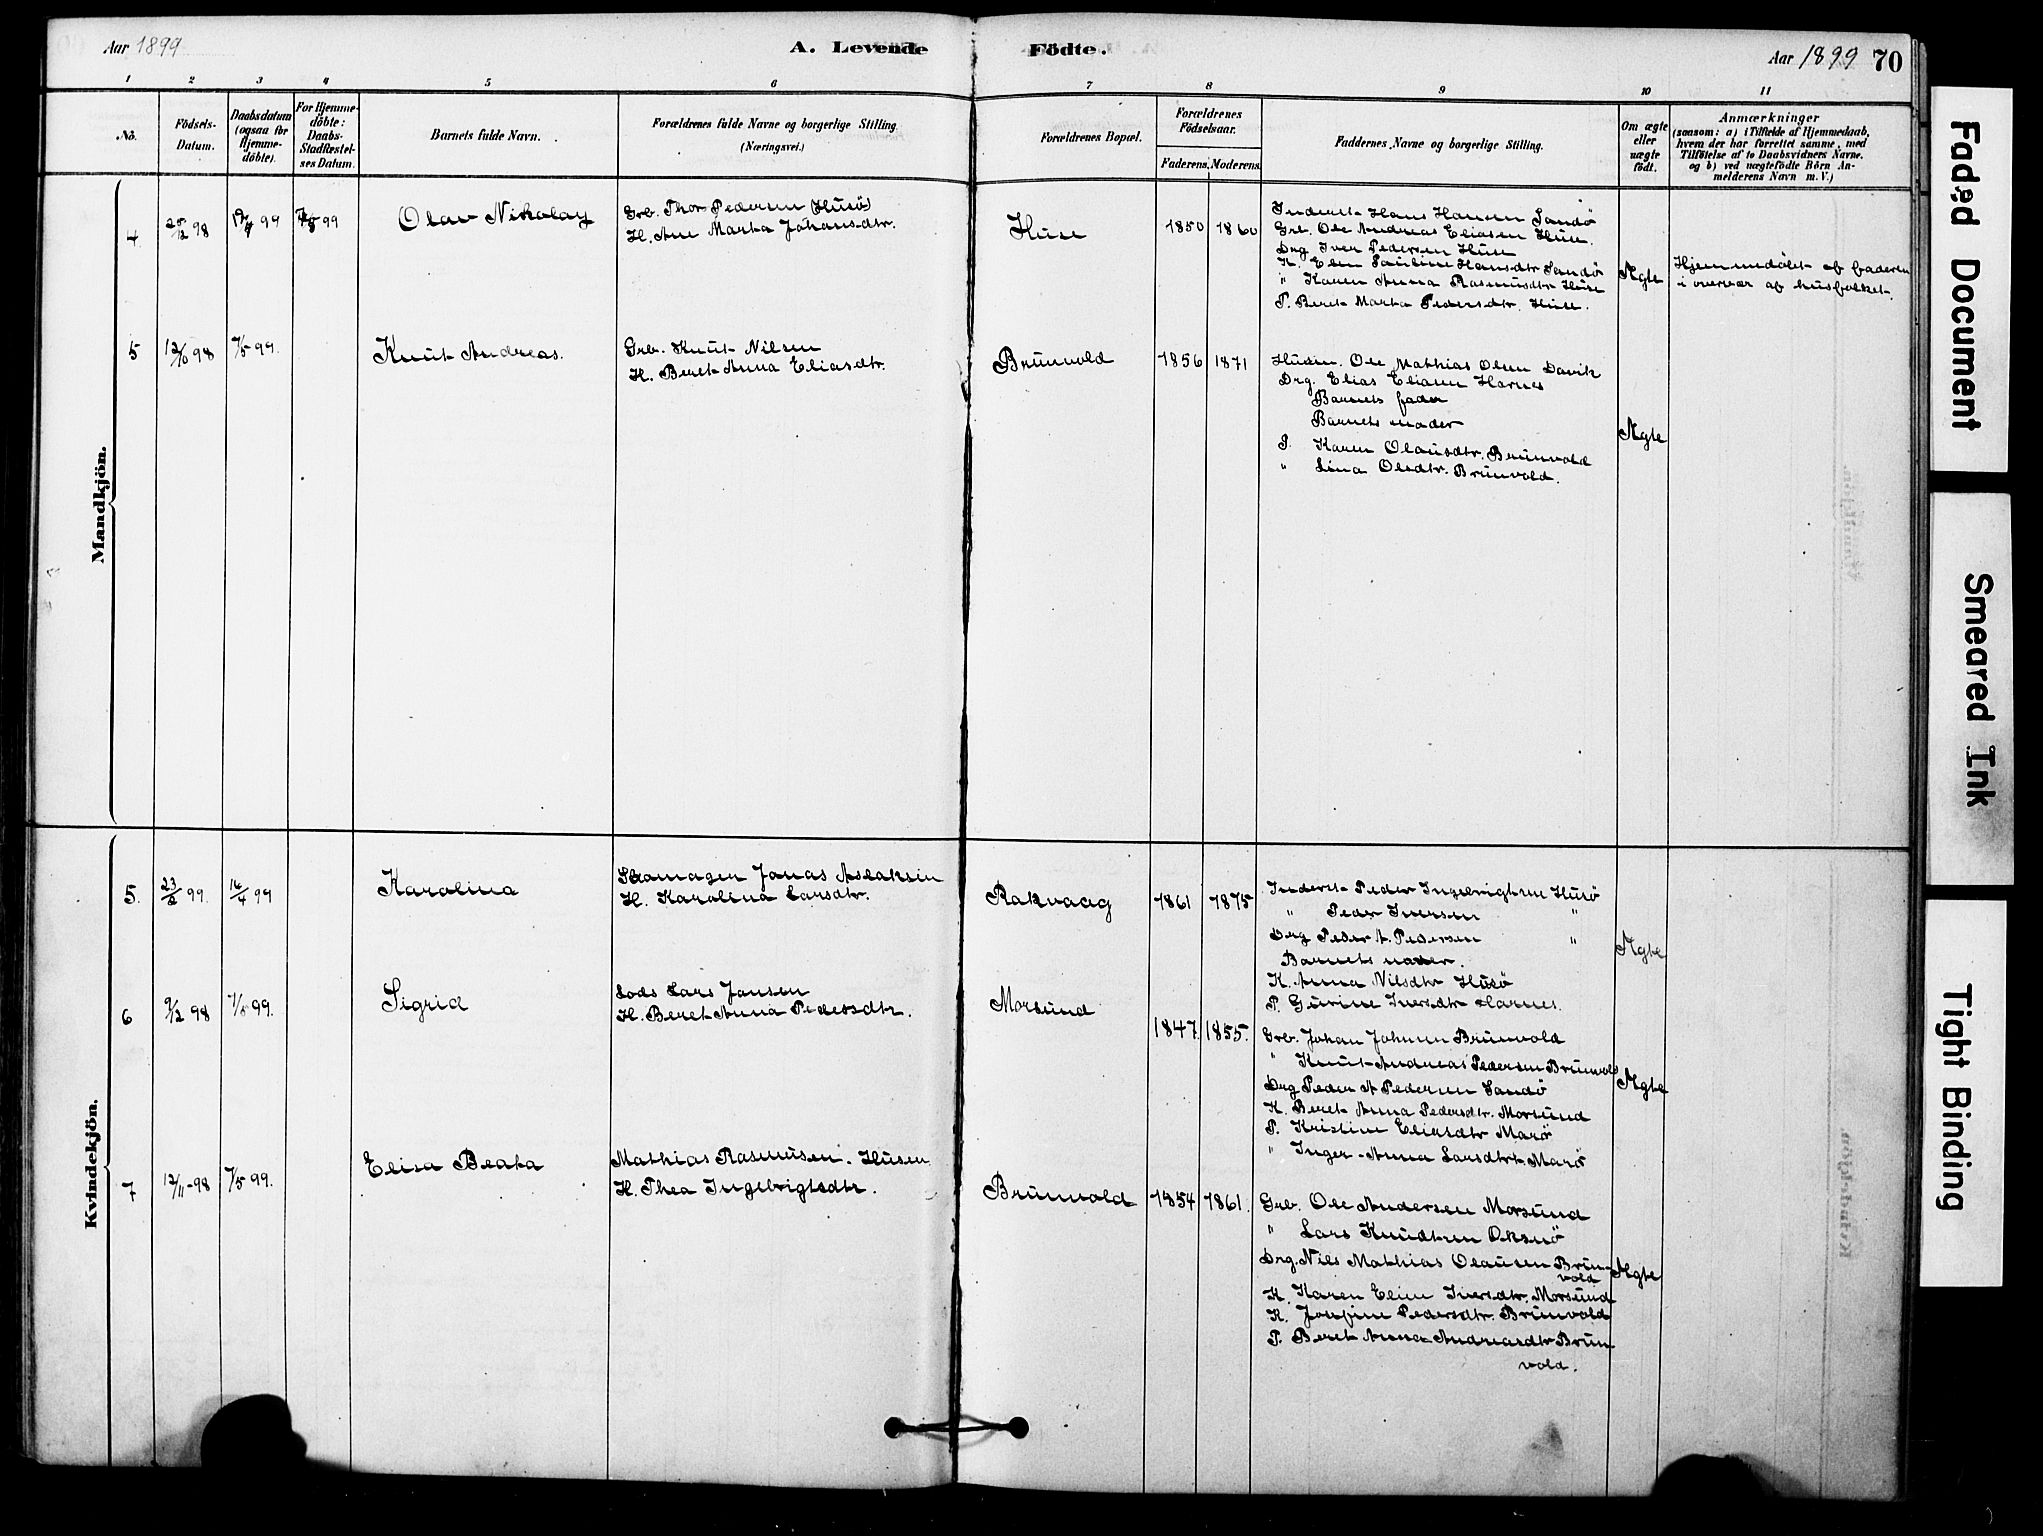 Aar 1899
A. Levende Födte.
Aar 1899 70
1 2 3 4 5 6 7 8 9 10 11
No.
Födsels-Datum.
Daabsdatum (ogsaa for Hjemme-döbte).
For Hjemme-döbte: Daabs-Stadfæstel-ses Datum.
Barnets fulde Navn.
Forældrenes fulde Navne og borgerlige Stilling.
(Næringsvei.)
Forældrenes Bopæl.
Forældrenes Födselsaar.
Faderens. Moderens.
Faddernes Navne og borgerlige Stilling.
Om ægte eller uægte födt.
Anmærkninger
(saasom: a) i Tilfælde af Hjemmedaab,
hvem der har forrettet samme, med
Tilföielse af to Daabsvidners Navne,
og b) ved uægtefödte Börn An-
melderens Navn m. V.)
Mandkjön.
4 98 99 99 Olav Nikolay
Grb. Thor Pedersen (Husö)
H. Ane Marta Johansdtr.
Huse 1850 1860
Inderst Hans Hansen Sandö
Grb. Ole Andreas Eliasen Huse.
Drg Iver Pedersen Huse
K. Elen Pauline Hansdtr Sandö
" Karen Anna Rasmusdtr Huse
P. Beret Marta Pedersdtr. Huse.
Ægte
Hjemmedöbt af faderen
i overvær af husfolket.
5 12/10 98 7/5 99. Knut Andreas.
Grb. Knut Nilsen
H. Beret Anna Eliasdtr.
Brunvold 1856 1871
Husm. Ole Mathias Olsen Davik
Drg. Elias Eliasen Harnes
Barnets fader
Barnets moder
P. Karen Olausdtr. Brunvold
" Lina Olsdtr. Brunvold.
Ægte
Kvindekjön.
5. 23/2 99. 16/4 99 Karolina
Skomager Jonas Aslaksen
H. Karolina Larsdtr.
Rakvaag 1861 1875
Inderst Peder Ingebrigtsen Husö
" Peder Iversen "
Drg Peder A. Pedersen "
Barnets moder.
K. Anna Nilsdtr Husö
P. Gurine Iversdtr Harnes.
Ægte
6 9/12 98 7/5 99. Sigrid
Lods Lars Jansen
H. Beret Anna Pedersdtr.
Morsund
1847. 1855.
Grb. Johan Johnsen Brunvold
" Knut Andreas Pedersen Brunvold
Drg Peder A Pedersen Sandö
K. Beret Anna Pedersdtr. Morsund
P. Kristine Eliasdtr Marö
" Inger Anna Larsdtr Marö
Ægte
7 12/11-98 7/5 99. Elisa Beata
Mathias Rasmusen. Husm
H. Thea Ingebrigtsdtr.
Brunvold 1854 1861.
Grb. Ole Andersen Morsund
" Lars Knudtsen Oksnö
Drg. Nils Mathias Olausen Brun-
vold
K. Karen Eline Iversdtr. Morsund
K. Josefine Pedersdtr. Brunvold
P. Beret Anna Andreasdtr Brun-
vold.
Ægte
Faded Document
Smeared Ink
Tight Binding